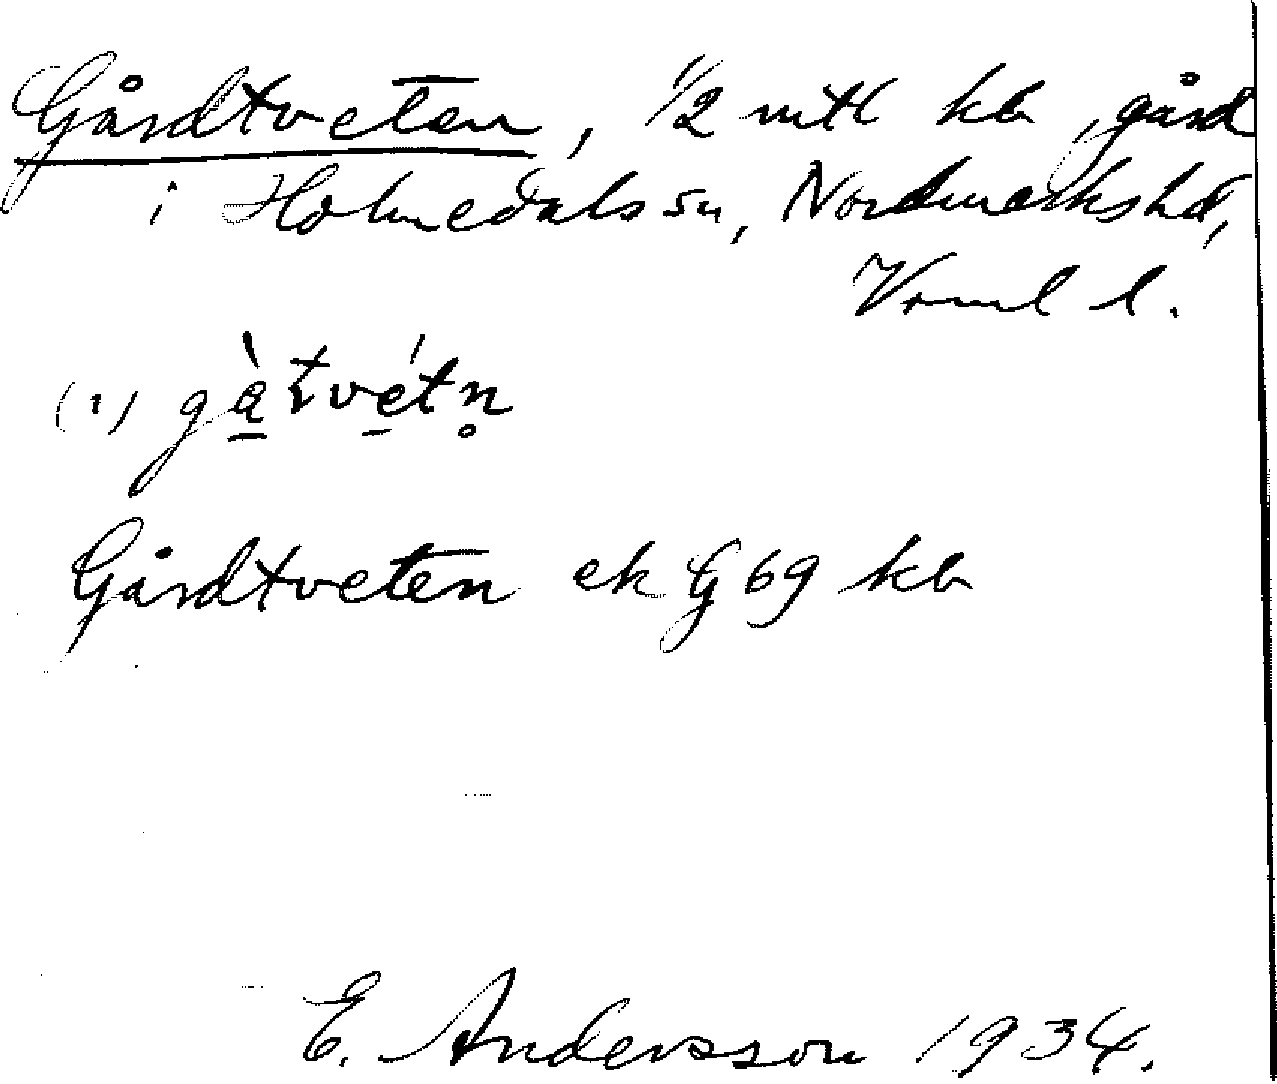 Gårdtveten, 1/2 mtl kb, gård
i Holmedals sn, Nordmarks hd,
Vrml l.
(1) gàtvétn̥
Gårdtveten ek G 69 kb
E. Andersson 1934.